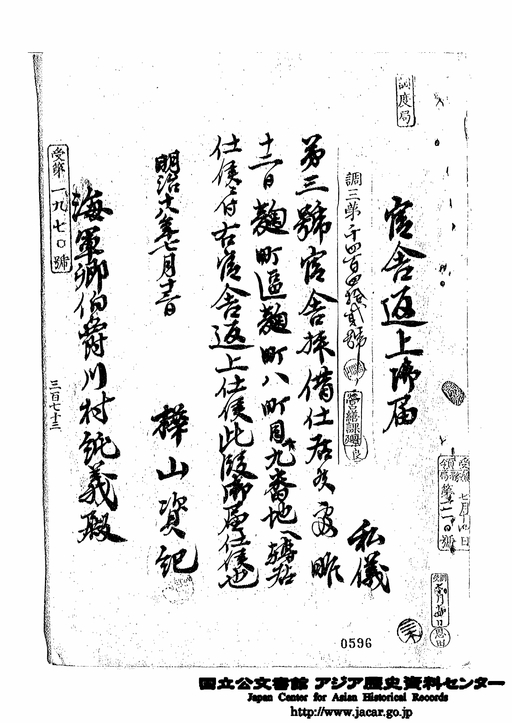 調度局
官舎返上御届
調三第千四百四拾貳號
營繕課
私儀
第三號官舎拝借仕居候處昨
十二日麹町區麹町八町目九番地ヘ轉居
仕候ニ付右官舎返上仕候此段御届仕候也
明治十八年七月十三日
樺山資紀
海軍卿伯爵川村純義殿
受第一九七〇號
三百七十三
七月十四日
0596
国立公文書館 アジア歴史資料センター
Japan Center for Asian Historical Records
http://www.jacar.go.jp